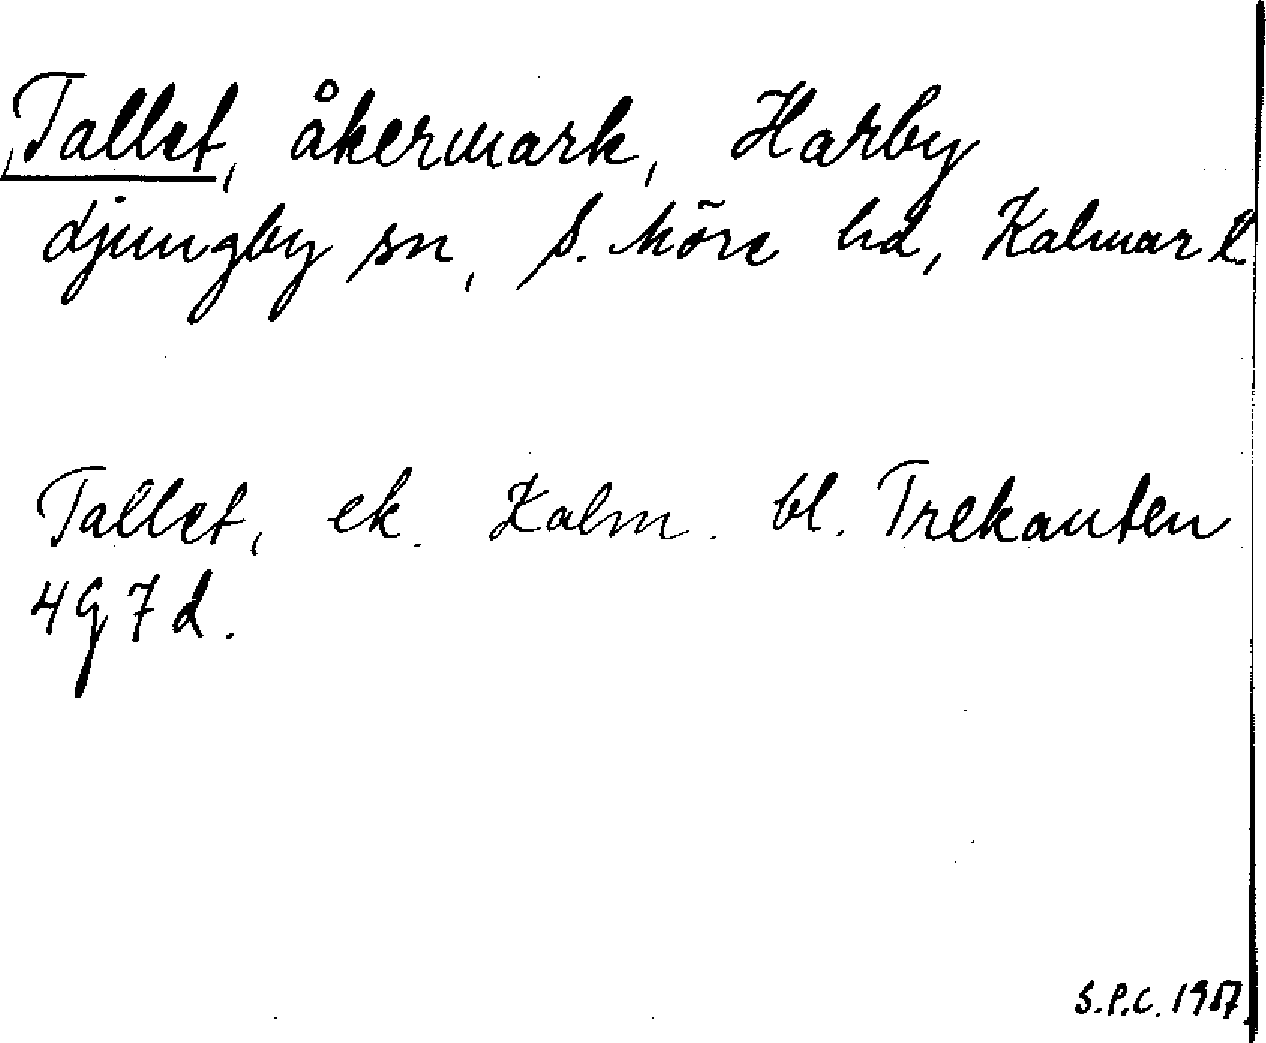 Tallet, åkermark, Harby
Ljungby sn, S. Möre hd, Kalmar l.
Tallet, ek. Kalm. bl. Trekanten
4G7d.
S.P.C. 1957.